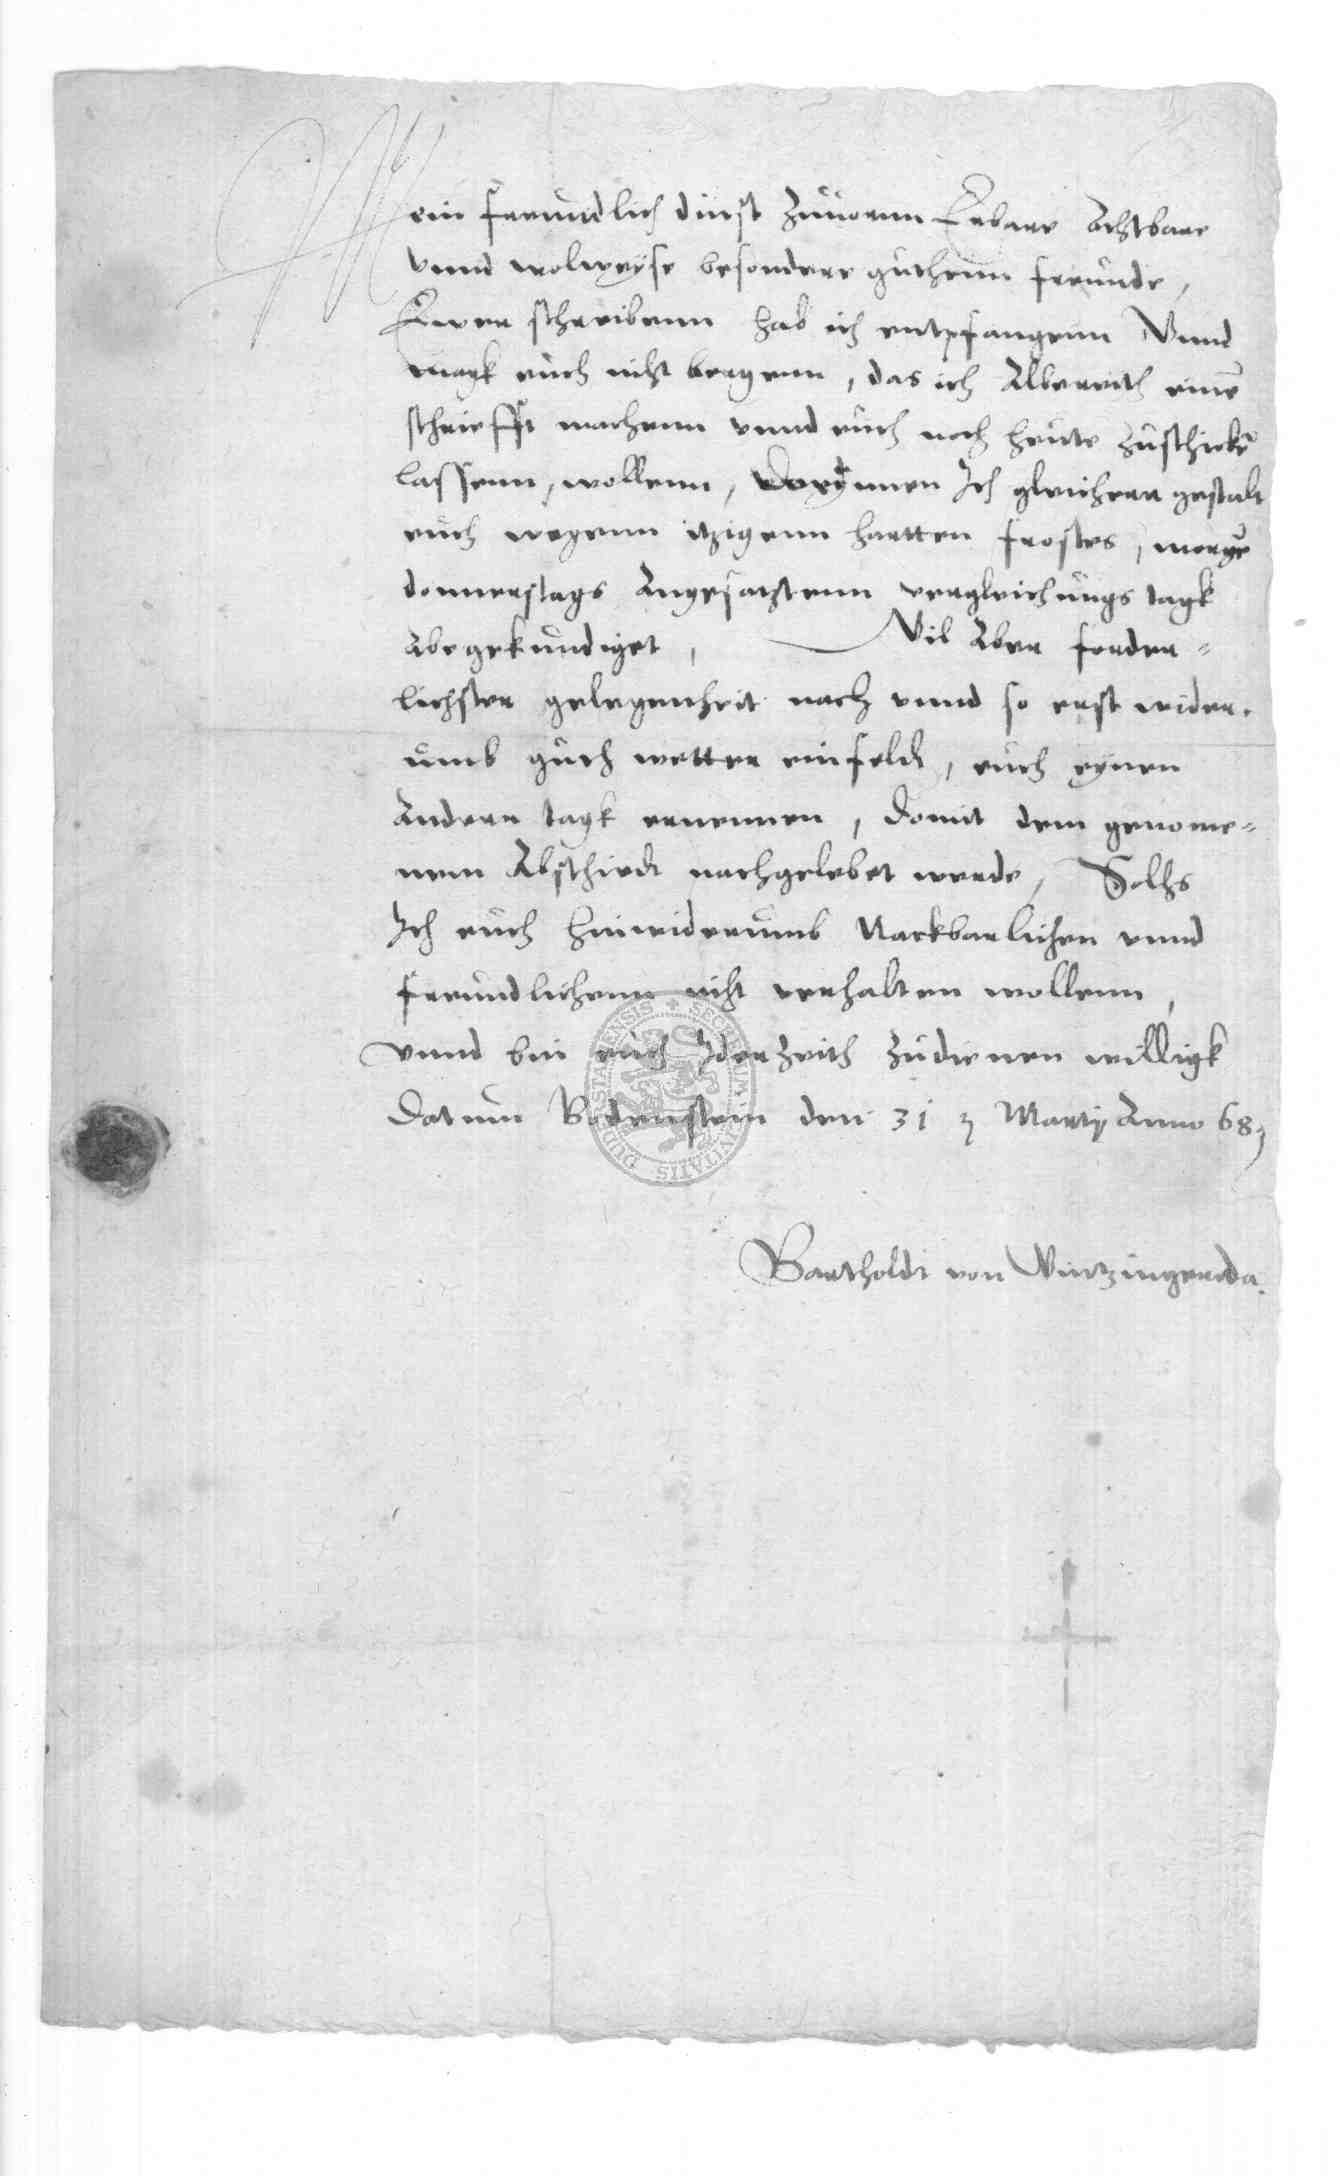 Mein freundlich dinst zuuornn Erbare Achtbare
vnnd wolweyse besondere guthenn freunde,
Ewer schreibenn hab ich entpfangenn Vnnd
magk euch nicht bergenn, das ich Albereith eine
schriefft machenn vnnd euch noch heute zuschicke
lassenn, wollenn, Dorynnen Ich gleicherr gestalt
euch wegenn itzigenn hartten frostes, morge
donnerstags Angesatztenn vergleichungs tagk
Abegekundiget, Wil Aber forder-
lichster gelegenheit nach vnnd so erst wider-
umb guth wetter einfeldt, euch eynen
Andern tagk ernennen, Domit dem genome-
nem Abschiedt nachgelebet werde, Solchs
Ich euch hinwiderumb Nackbarlichen vnnd
freundlichenn nicht verhalten wollenn,
vnnd bin euch Iderzeith zudienen willigk
Datum Bodennstein den 31 Martij Anno 68
Bartholdt von Wintzingeroda.
SECRETUM CIVITATIS DUDERSTADENSIS